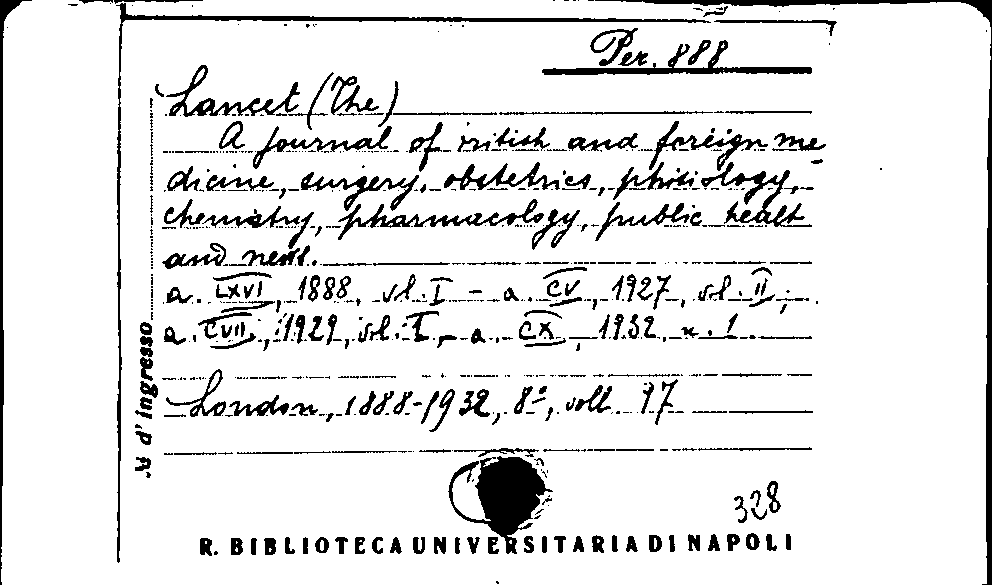 Per. 888
Lancet (The)
A journal of british and foreign me-
dicine, surgery, obstetrics, phisiology,
chemistry, pharmacology, public healt
and news.
a. LXVI, 1888, vl. I - a. CV, 1927, vl. II;
a. CVII, 1929, vl. I - a. CX, 1932, n. 1.
London, 1888-1932, 8º, voll. 97
328
N. d'ingresso
R. BIBLIOTECA UNIVERSITARIA DI NAPOLI